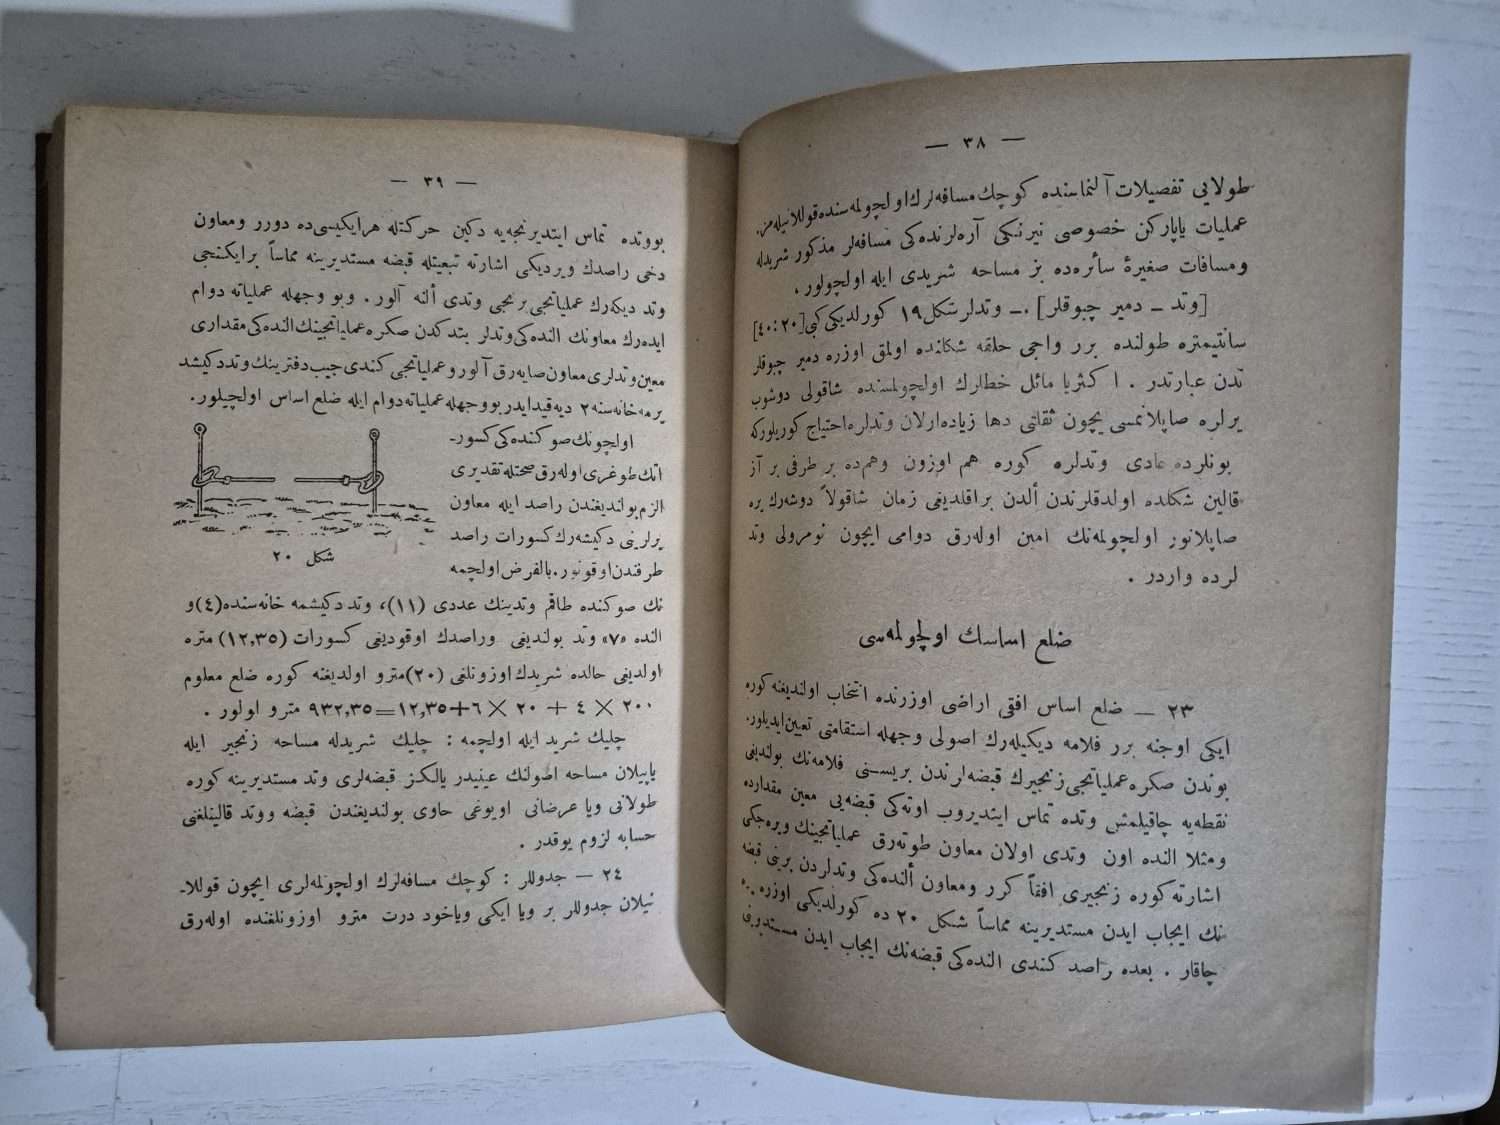 — ٣٨ —
طولایی تفصیلات آلنماسنده کوچك مسافه‌لرك اولچولمه‌سنده قوللانیله‌مز.
عملیات یاپارکن خصوصی نیرنکی آره‌لرنده‌کی مسافه‌لر مذکور شریدله
ومسافات صغیرهٔ سائره‌ده بز مساحه شریدی ایله اولچولور.
[وتد ـ دمیر چبوقلر] .ـ وتدلر شکل ١٩ کورلدیکی کبی [٢٠:٤٠]
سانتیمتره طولنده برر واجی حلقه شکلنده اولمق اوزره دمیر چبوقلر
تدن عبارتدر . اکثریا مائل خطلرك اولچولمسنده شاقولی دوشوب
یرلره صاپلانمسی ایچون ثقلتی دها زیاده‌ارلان وتدلره احتیاج کوریلورکه
بونلرده عادی وتدلره کوره هم اوزون وهم‌ده بر طرفی بر آز
قالین شکلده اولدقلرندن ألدن براقلدیغی زمان شاقولاً دوشه‌رك یره
صاپلانور اولچولمه‌نك امین اوله‌رق دوامی ایچون نومرولی وتد
لرده واردر .
ضلع اساسك اولچولمه‌سی
٢٣ — ضلع اساس افقی اراضی اوزرنده انتخاب اولندیغنه کوره
ایکی اوجنه برر فلامه دیکیله‌رك اصولی وجهله استقامتی تعیین‌ایدیلور.
بوندن صکره عملیاتجی زنجیرك قبضه‌لرندن بریسنی فلامه‌نك بولندیغی
نقطه‌یه چاقیلمش وتده تماس ایتدیروب اوته‌کی قبضه‌یی معین مقدارده
ومثلا النده اون وتدی اولان معاون طوته‌رق عملیاتجینك ویره‌جکی
اشارته کوره زنجیری افقاً کرر ومعاون ألنده‌کی وتدلردن برینی قبضه
نك ایجاب ایدن مستدیرینه مماساً شکل ٢٠ ده کورلدیکی اوزره یره
چاقار . بعده راصد کندی النده‌کی قبضه‌نك ایجاب ایدن مستدیرینی
— ٣٩ —
بووتده تماس ایتدیرنجه‌یه دکین حرکتله هرایکیسی‌ده دورر ومعاون
دخی راصدك ویردیکی اشارته تبعیتله قبضه مستدیرینه مماساً برایکنجی
وتد دیکه‌رك عملیاتجی برنجی وتدی ألنه آلور . وبو وجهله عملیاته دوام
ایده‌رك معاونك النده‌کی وتدلر بتدکدن صکره عملیاتجینك النده‌کی مقداری
معین وتدلری معاون صایه‌رق آلور و عملیاتجی کندی جیب دفترینك وتددکیشد
یرمه خانه‌سنه ٢ دیه قیدایدر بووجهله عملیاته دوام ایله ضلع اساس اولچیلور.
اولچونك صوکنده‌کی کسور-
اتك طوغری اوله‌رق صحتله تقدیری
الزم بولندیغندن راصد ایله معاون
یرلرینی دکیشه‌رك کسورات راصد
طرفندن اوقونور. بالفرض اولچمه
شکل ٢٠
نك صوکنده طاقم وتدینك عددی (١١)، وتد دکیشمه خانه‌سنده (٤) و
النده «٧» وتد بولندیغی وراصدك اوقودیغی کسورات (١٢,٣٥) متره
اولدیغی حالده شریدك اوزونلغی (٢٠) مترو اولدیغنه کوره ضلع معلوم
٢٠٠ × ٤ + ٢٠ × ٦ + ١٢,٣٥ = ٩٣٢,٣٥ مترو اولور .
چلیك شرید ایله اولچمه : چلیك شریدله مساحه زنجیر ایله
یاپیلان مساحه اصولنك عینیدر یالکز قبضه‌لری وتد مستدیرینه کوره
طولانی ویا عرضانی اویوغی حاوی بولندیغندن قبضه ووتد قالینلغنی
حسابه لزوم یوقدر .
٢٤ — جدوللر : کوچك مسافه‌لرك اولچولمه‌لری ایچون قوللا-
نیلان جدوللر بر ویا ایکی ویاخود درت مترو اوزونلغنده اوله‌رق